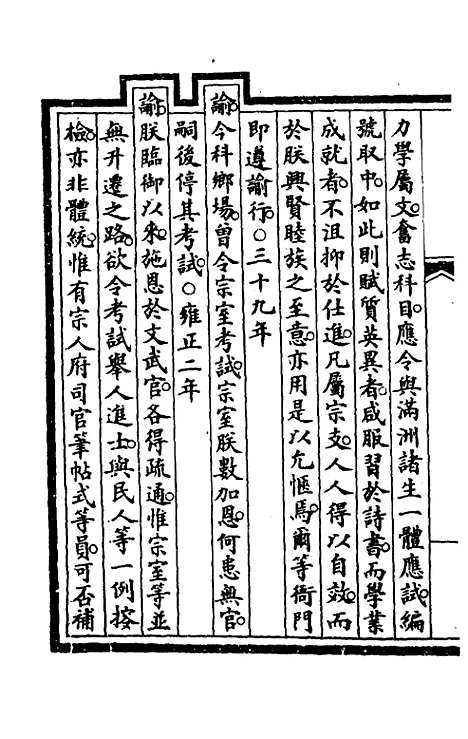 力學屬文。奮志科目。應令與滿洲諸生一體應試。編
號取中。如此則賦質英異者。咸服習於詩書。而學業
成就者。不沮抑於仕進。凡屬宗支。人人得以自效。而
於朕興賢睦族之至意。亦用是以允愜焉。爾等衙門
即遵諭行。○三十九年
諭。今科鄉場。曾令宗室考試。宗室朕數加恩。何患無官。
嗣後停其考試。○雍正二年
諭。朕臨御以來。施恩於文武官。各得疏通。惟宗室等並
無升遷之路。欲令考試舉人進士。與民人等一例按
檢。亦非體統。惟有宗人府司官筆帖式等員。可否補